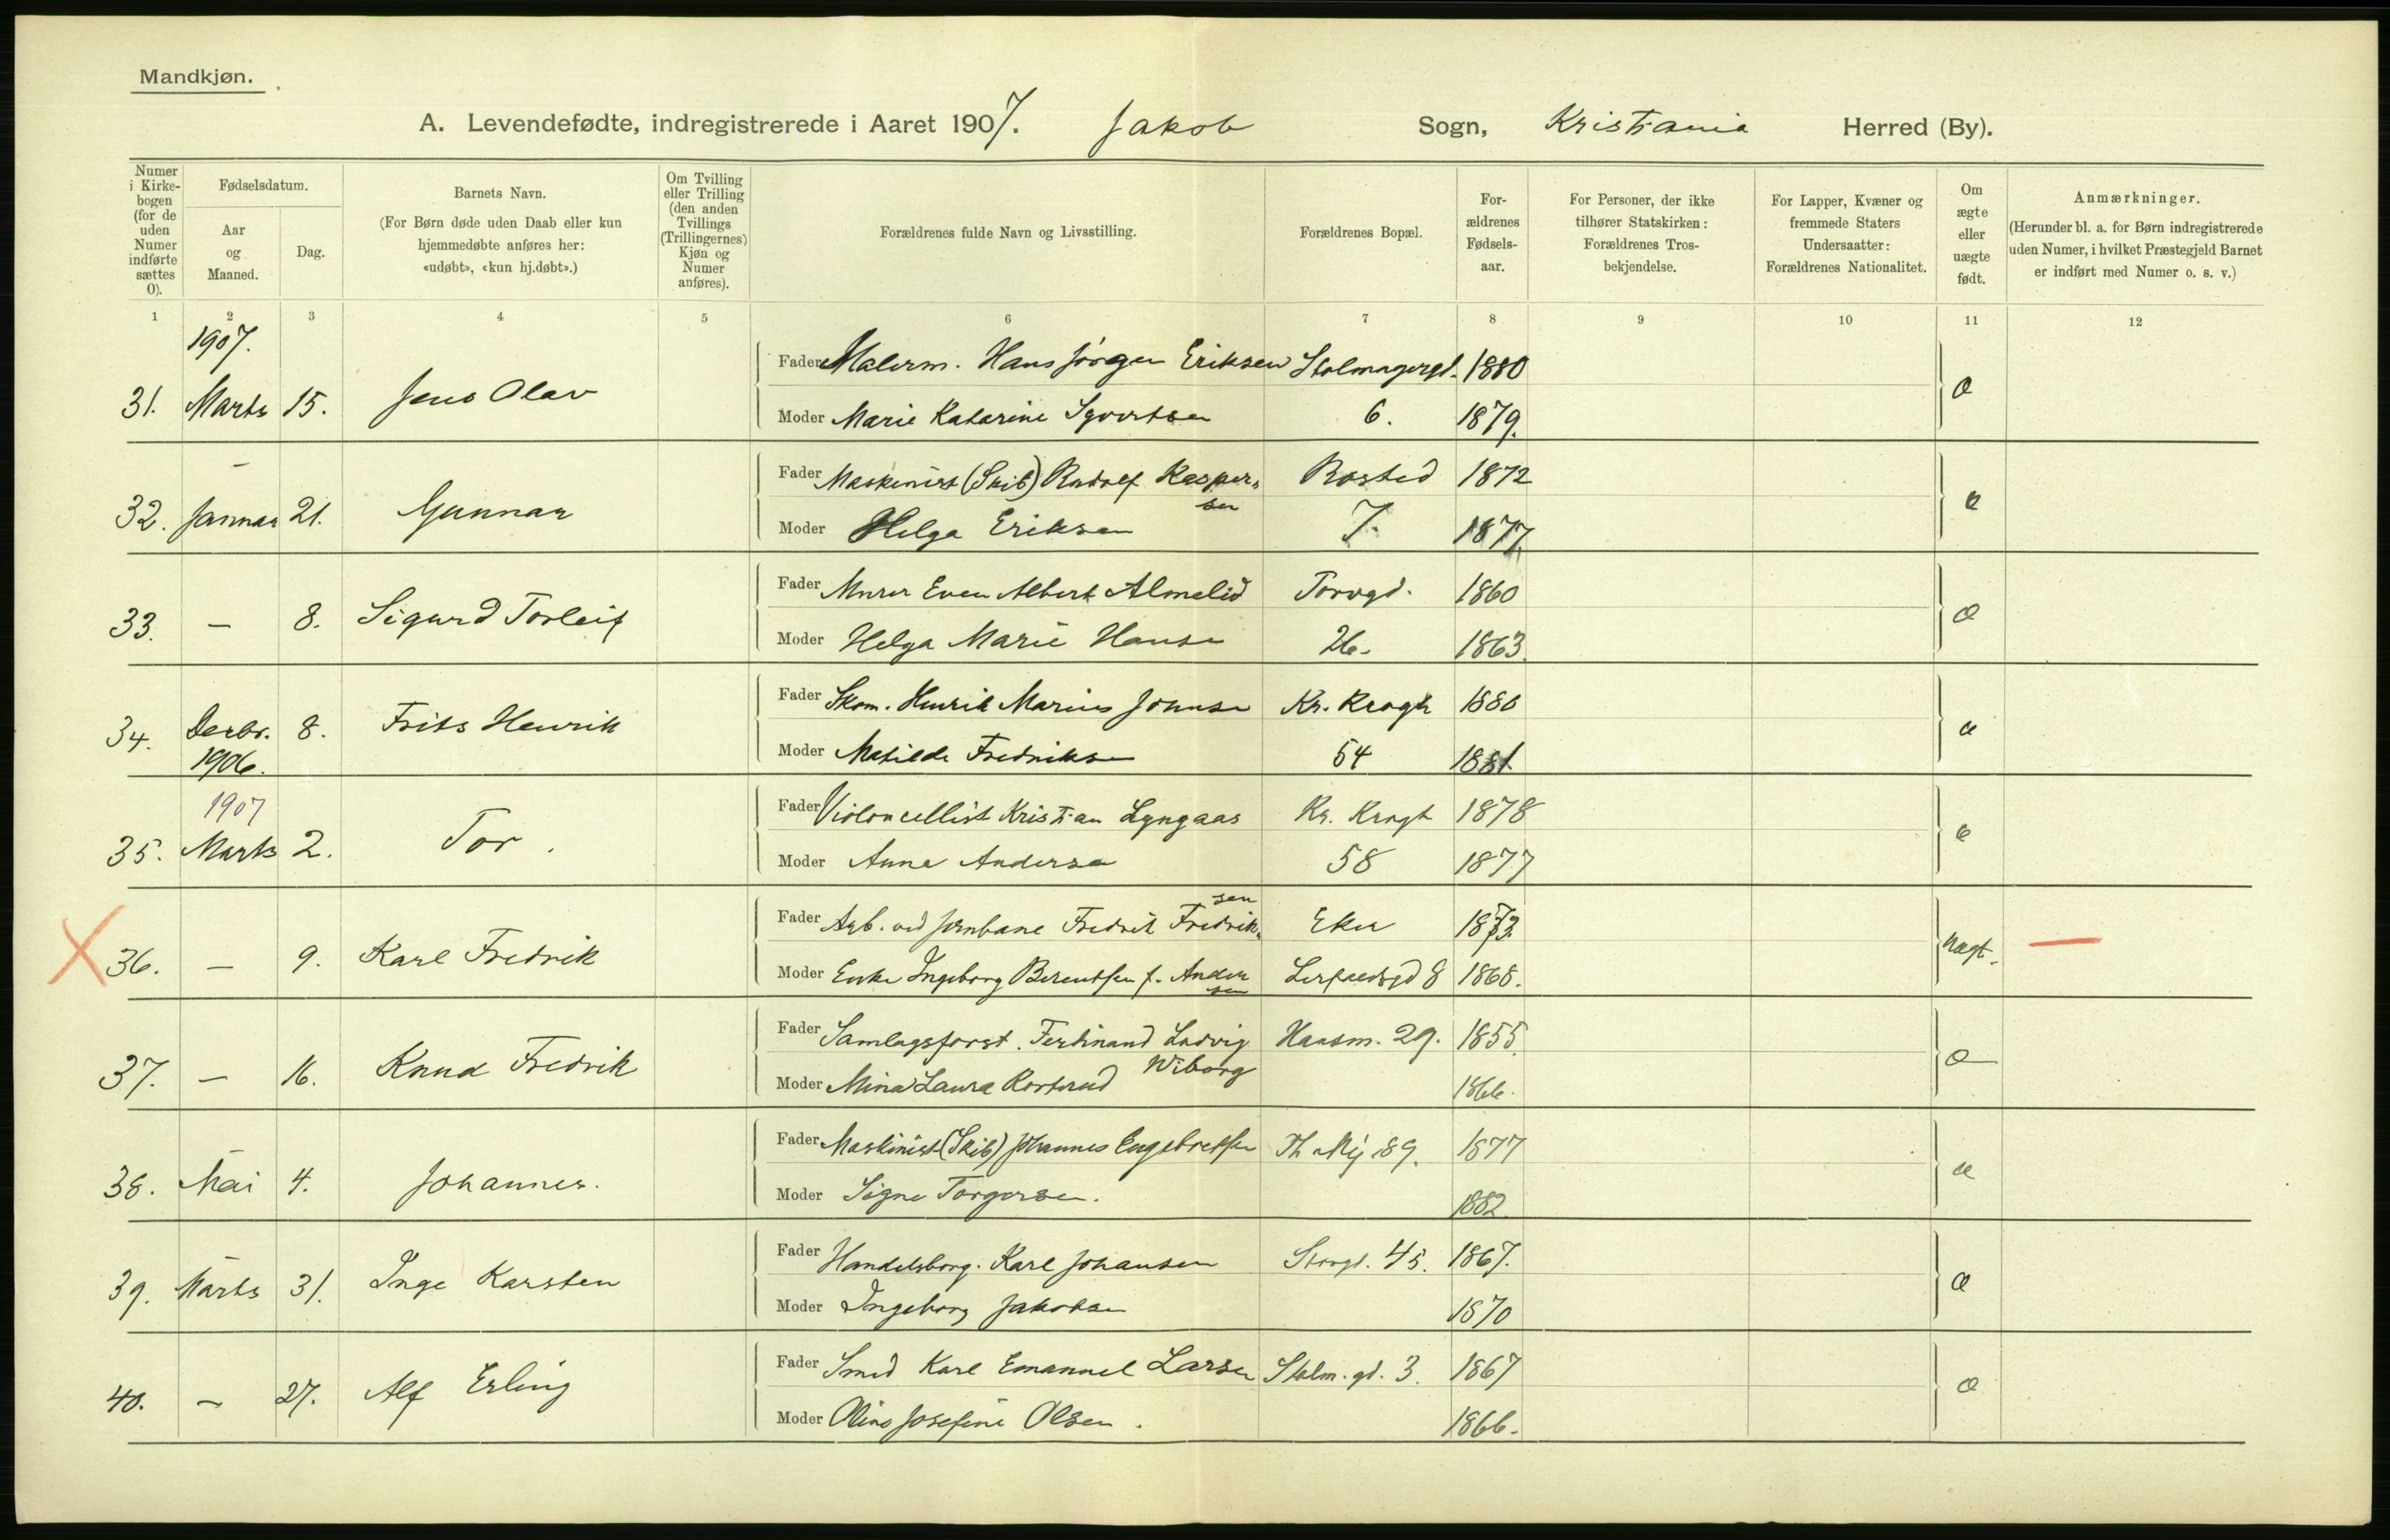 Mandkjøn.
A. Levendefødte, indregistrerede i Aaret 1907. Jakob Sogn, Kristiania Herred (By).
Numer i Kirkebogen (for de uden Numer indførte sættes 0).
Fødselsdatum.
Aar og Maaned.
Dag.
Barnets Navn.
(For Børn døde uden Daab eller kun hjemmedøbte anføres her: «udøbt», «kun hj.døbt».)
Om Tvilling eller Trilling (den anden Tvillings (Trillingernes) Kjøn og Numer anføres).
Forældrenes fulde Navn og Livsstilling.
Forældrenes Bopæl.
Forældrenes Fødselsaar.
For Personer, der ikke tilhører Statskirken: Forældrenes Trosbekjendelse.
For Lapper, Kvæner og fremmede Staters Undersaatter: Forældrenes Nationalitet.
Om ægte eller uægte født.
Anmærkninger.
(Herunder bl. a. for Børn indregistrerede uden Numer, i hvilket Præstegjeld Barnet er indført med Numer o. s. v.)
1 2 3 4 5 6 7 8 9 10 11 12
1907.
31. Marts 15. Jens Olav
Fader Malerm. Hans Jörgen Eriksen Stolmagergd. 1880
Moder Marie Katarine 6. 1879.
32. Januar 21. Gunnar
Fader Maskinist (Skib) Rudolf Kaspersen Rosted 1872
Moder Helga Eriksen 7. 1877.
33. — 8. Sigurd Torleif
Fader Murer Even Albert Almelid Torvgd. 1860
Moder Helga Marie Hansen 26. 1863.
34. Decbr. 1906. 8. Frits Henrik
Fader Skom. Henrik Marius Johnsen Kr. Krogh 1880
Moder Matilde Fredriksen 54 1881.
1907
35. Marts 2. Tor.
Fader Violoncellist Kristian Lyngaas Kr. Krogh 1878
Moder Anna Andersen 58 1877
36. — 9. Karl Fredrik
Fader Arb. ved Jernbane Fredrik Fredriksen Eker 1873.
Moder Enke Ingeborg Berentsen f. Andersen Lerfaldsgd 8 1868. uægt.
37. — 16. Knud Fredrik
Fader Samlagsforst. Ferdinand Ludvig Wiborg Hausm. 29. 1855.
Moder Mina Laura 1866.
38. Mai 4. Johannes.
Fader Maskinist (Skib) Johannes Engebretsen Th Mej 89. 1877
Moder Signe Torgersen. 1882.
39. Marts 31. Inge Karsten
Fader Handelsborg. Karl Johansen Storgd. 45. 1867.
Moder Ingeborg Jakobsen 1870
40. — 27. Alf Erling
Fader Smed Karl Emanuel Larsen Stolm. gd. 3. 1867
Moder Oline Josefine Olsen. 1866.